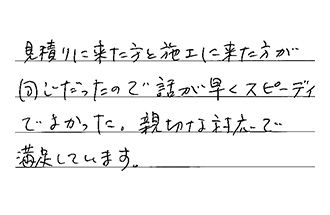 見積りに来た方と施工に来た方が
同じだったので話が早くスピーディ
でよかった。親切な対応で
満足しています。